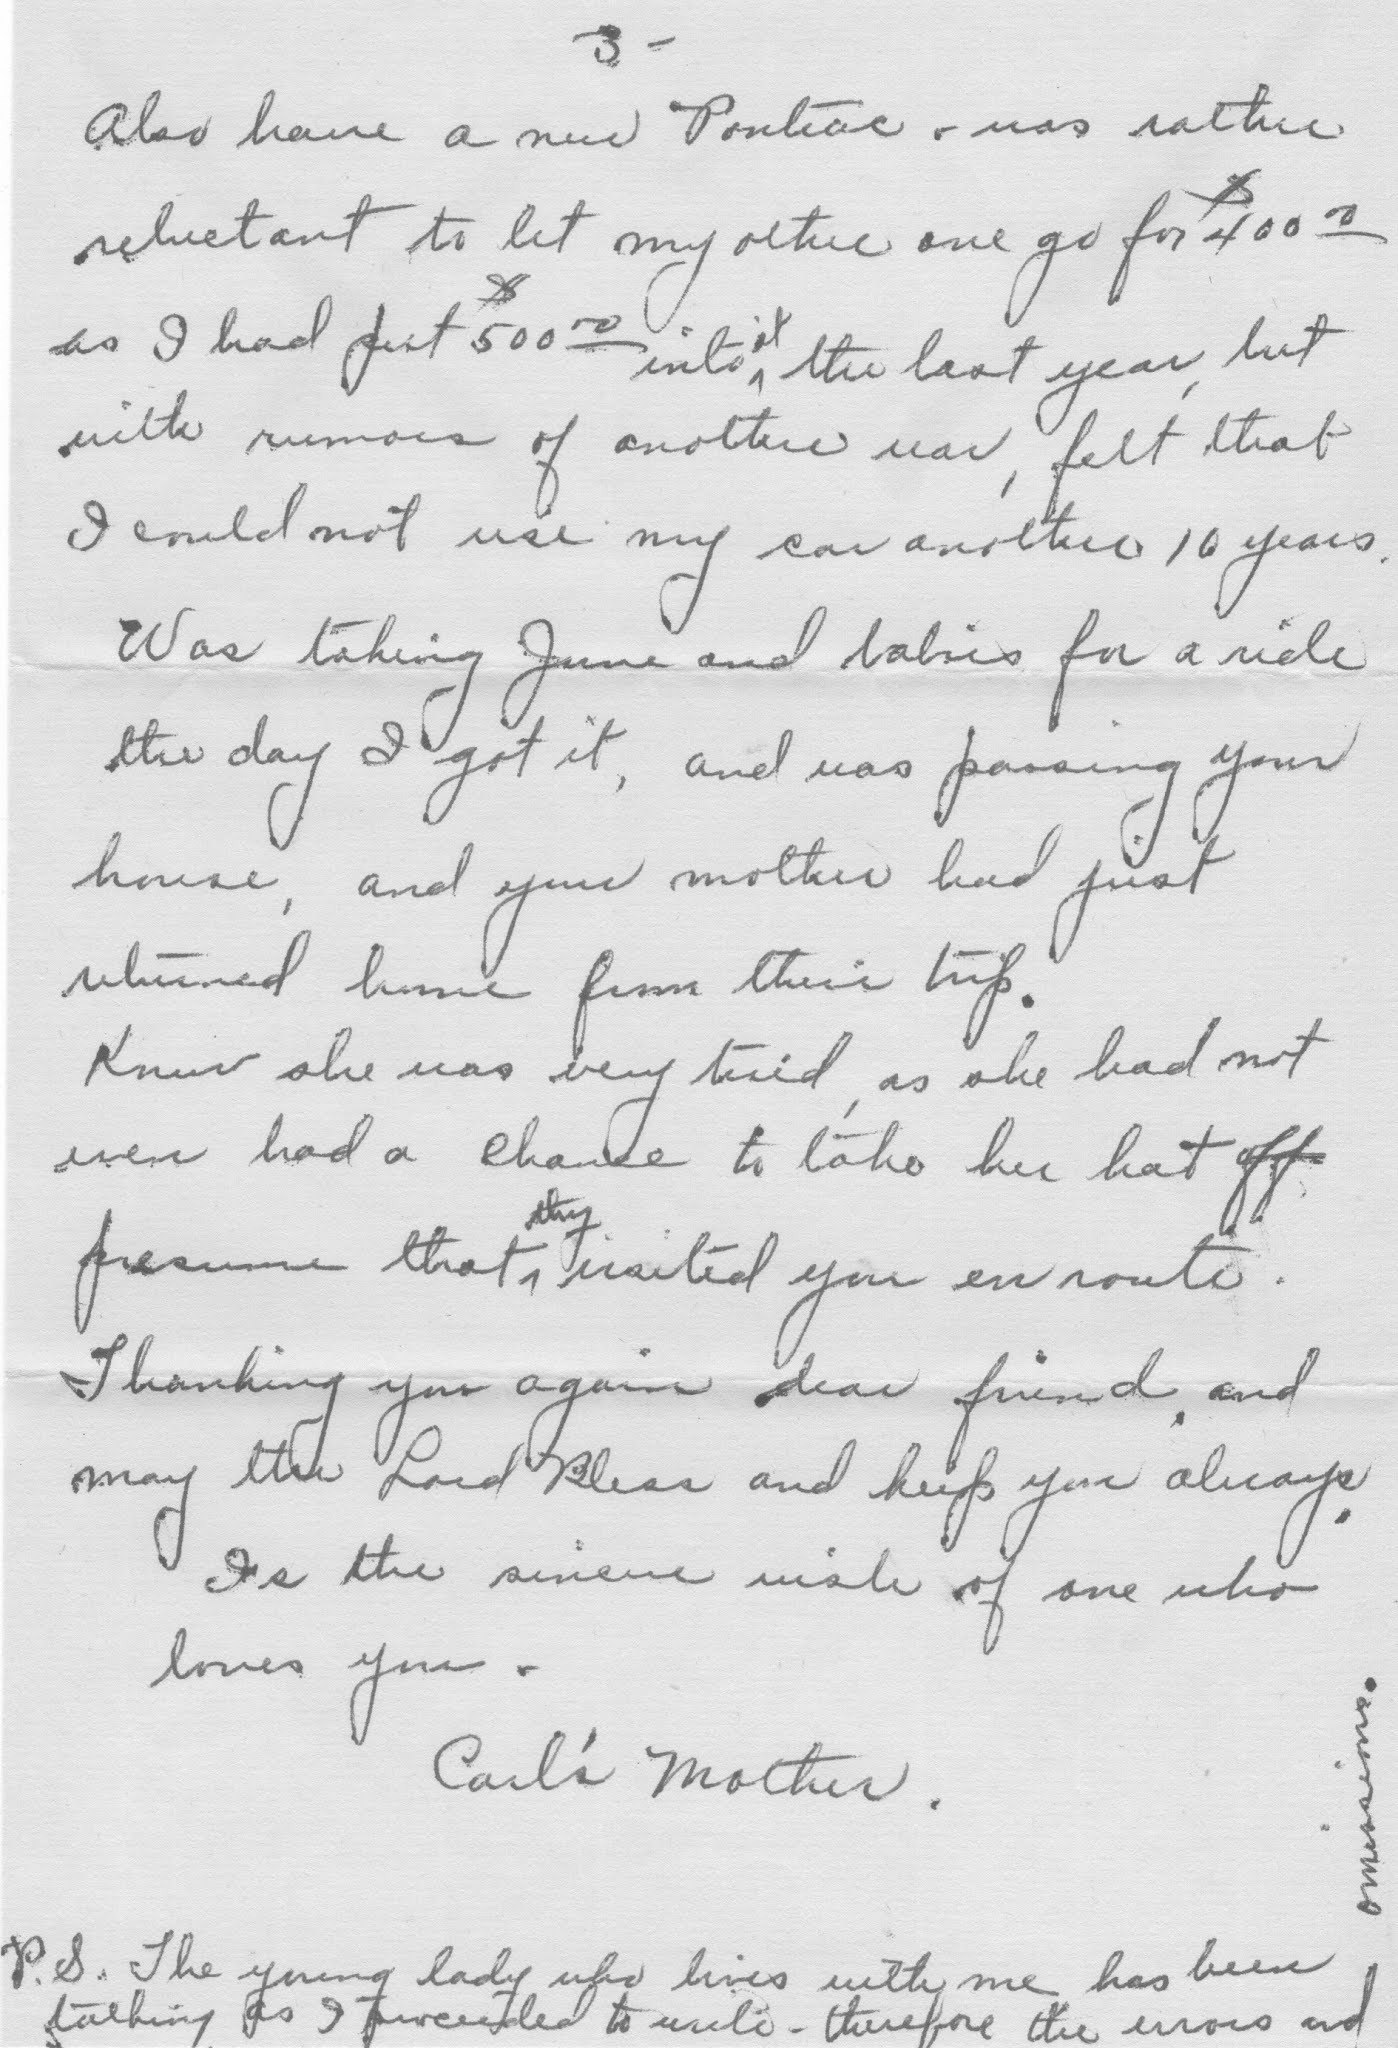 -3-
Also have a new Pontiac - was rather
reluctant to let my other one go for $400.00
as I had put $500.00 into it the last year, but
with rumors of another war, felt that
I could not use my car another 10 years.
Was taking June and babies for a ride
the day I got it, and was passing your
house, and your mother had just
returned home from their trip.
Knew she was very tired, as she had not
even had a chance to take her hat off
presume that they visited you en route.
Thanking you again dear friend, and
may the Lord Bless and keep you always.
Is the sincere wish of one who
loves you.
Carl's Mother.
P.S. The young lady who lives with me has been
talking as I proceeded to write - therefore the errors and
omissions.